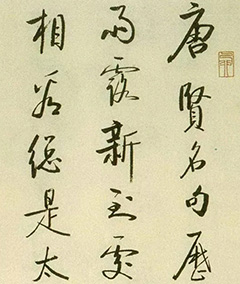 唐賢名句歷
雨露新到處
相看總是太